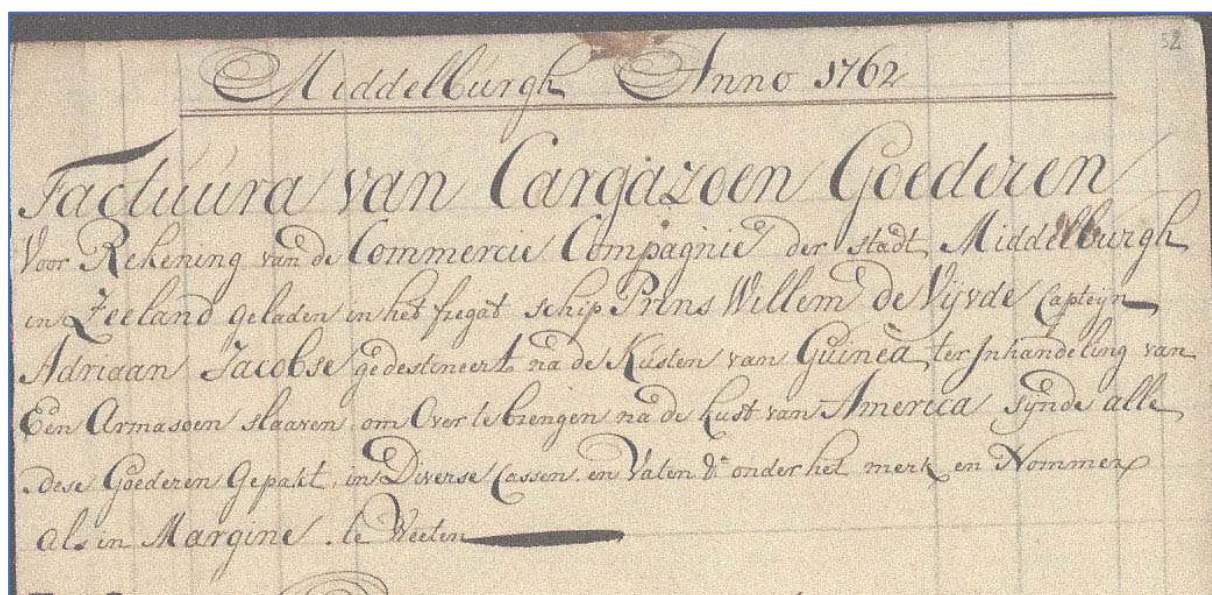 52
Middelburgh Anno 1762
Factuura van Cargazoen Goederen
Voor Rekening van de Commercie Compagnie der stadt Middelburgh
in Zeeland geladen in het fregat schip Prins Willem de Vijvde Capteijn
Adriaan Jacobse gedestineert na de Kusten van Guinéa, ter Inhandeling van
Een Armasoen slaaven om Over te brengen na de kust van America sijnde alle
dese Goederen Gepakt in Diverse Cassen en Vaten &a onder het merk en Nommer
als in Margine te Weeten